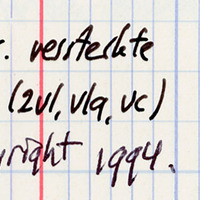 . versteckte
(2vl, vla, vc)
right 1994.